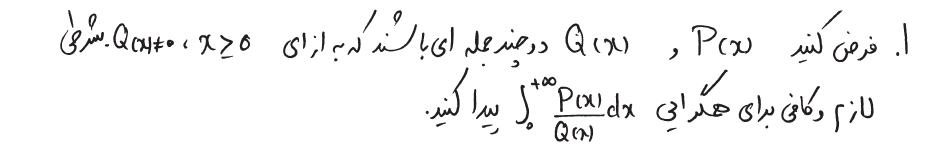 ۱. فرض کنید P(x) و Q(x) دو چند جمله ای باشند که به ازای x ≥ 0، Q(x) ≠ 0. شرطی
لازم و کافی برای همگرایی ∫₀^{+∞} P(x)/Q(x) dx پیدا کنید.